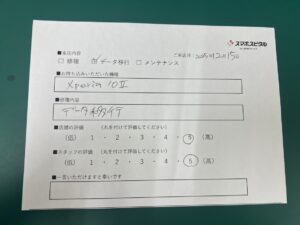 スマホスピタル
■来店内容
ご来店日:2025年12月15日
□ 修理 ☑ データ移行 □ メンテナンス
■お持ち込みいただいた機種
Xperia 10 II
■修理内容
データ移行
■店舗の評価 (丸を付けて評価してください)
(低) 1 ・ 2 ・ 3 ・ 4 ・ 5 (高)
■スタッフの評価 (丸を付けて評価してください)
(低) 1 ・ 2 ・ 3 ・ 4 ・ 5 (高)
■一言いただけますと幸いです